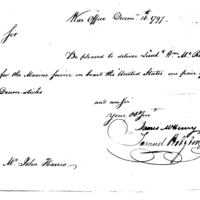 War Office Decemr. 16th 1797.
Sir
Be pleased to deliver Lieut. Wm. Mc
for the Marine Service on board the United States, one pair
Drum sticks
and am Sir
your Obt Svt
James McHenry
Samuel Hodgdon
Mr. John Harris